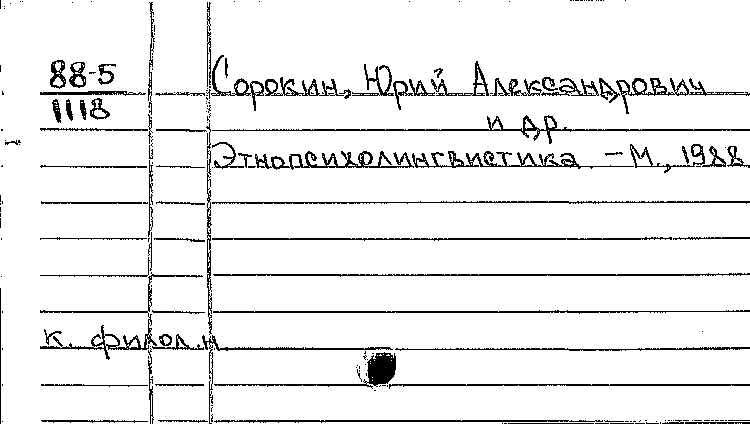 88-5
1118
Сорокин, Юрий Александрович
и др.
Этнопсихолингвистика. – М., 1988
к. филол.н.